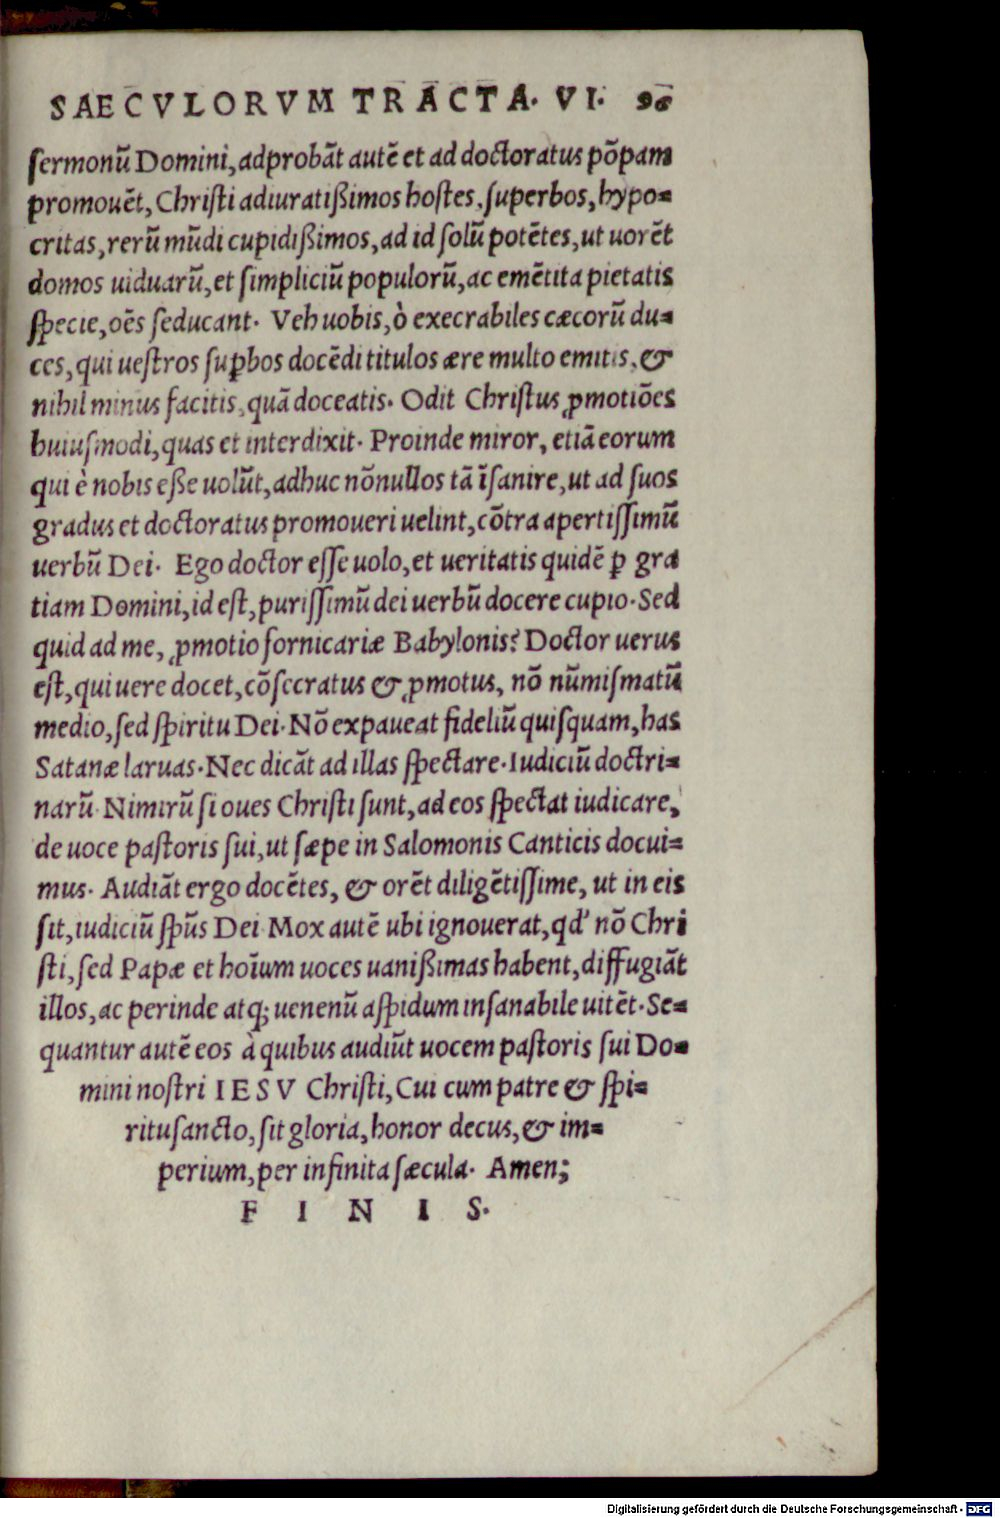 SAECVLORVM TRACTA. VI. 96
ſermonū Domini, adprobāt autē et ad doctoratus pōpam
promouēt, Chriſti adiuratißimos hoſtes, ſuperbos, hypo-
critas, rerū mūdi cupidißimos, ad id ſolū potētes, ut uorēt
domos uiduarū, et ſimpliciū populorū, ac emētita pietatis
ſpecie, oēs ſeducant. Veh uobis, ò execrabiles cæcorū du-
ces, qui ueſtros ſuꝑbos docēdi titulos ære multo emitis, &
nihil minus facitis, quā doceatis. Odit Chriſtus ꝓmotiōes
huiuſmodi, quas et interdixit. Proinde miror, etiā eorum
qui è nobis eße uolūt, adhuc nōnullos tā īſanire, ut ad ſuos
gradus et doctoratus promoueri uelint, cōtra apertiſſimū
uerbū Dei. Ego doctor eſſe uolo, et ueritatis quidē ꝑ gra
tiam Domini, id eſt, puriſſimū dei uerbū docere cupio. Sed
quid ad me, ꝓmotio fornicariæ Babylonis? Doctor uerus
eſt, qui uere docet, cōſecratus & ꝓmotus, nō nūmiſmatū
medio, ſed ſpiritu Dei. Nō expaueat fideliū quiſquam, has
Satanæ laruas. Nec dicāt ad illas ſpectare. Iudiciū doctri-
narū. Nimirū ſi oues Chriſti ſunt, ad eos ſpectat iudicare,
de uoce paſtoris ſui, ut ſæpe in Salomonis Canticis docui-
mus. Audiāt ergo docētes, & orēt diligētiſſime, ut in eis
ſit, iudiciū ſpūs Dei. Mox autē ubi ignouerat, qd' nō Chri
ſti, ſed Papæ et hoīum uoces uanißimas habent, diffugiāt
illos, ac perinde atq; uenenū aſpidum inſanabile uitēt. Se-
quantur autē eos à quibus audiūt uocem paſtoris ſui Do-
mini noſtri IESV Chriſti, Cui cum patre & ſpi-
rituſancto, ſit gloria, honor decus, & im-
perium, per infinita ſæcula. Amen;
F I N I S.
Digitalisierung gefördert durch die Deutsche Forschungsgemeinschaft - DFG